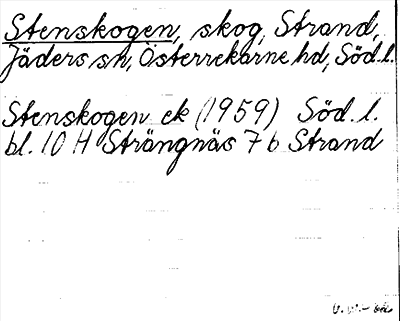 Stenskogen, skog, Strand,
Jäders sn, Österrekarne hd, Söd.l.
Stenskogen ek (1959) Söd. l.
bl. 10 H Strängnäs 7 b Strand